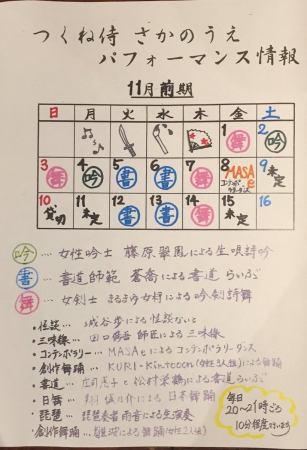 つくね侍 さかのうえ
パフォーマンス情報
11月前期
日 月 火 水 木 金 土
1 舞 2 吟
3 舞 4 吟 5 書 6 書 7 舞 8 MASAe コンテンポラリーダンス 9 未定
10 貸切 11 未定 12 書 13 書 14 舞 15 未定 16
吟 … 女性吟士 藤原翠風による生唄詩吟
書 … 書道師範 蒼喬による書道らいぶ
舞 … 女剣士 による吟剣詩舞
・怪談… 城谷歩による怪談らいぶ
・三味線… 田口 師匠による三味線
・コンテンポラリー… MASAeによるコンテンポラリーダンス
・創作舞踊… KURI-Kintoon (女性3人組)による舞踊
・書道… 松村 による書道らいぶ
・日舞… による日本舞踊
・琵琶… 琵琶奏者雨音による生演奏
・創作舞踊… による舞踊(女性2人組)
毎日
20～21時ごろ
10分程度 行います